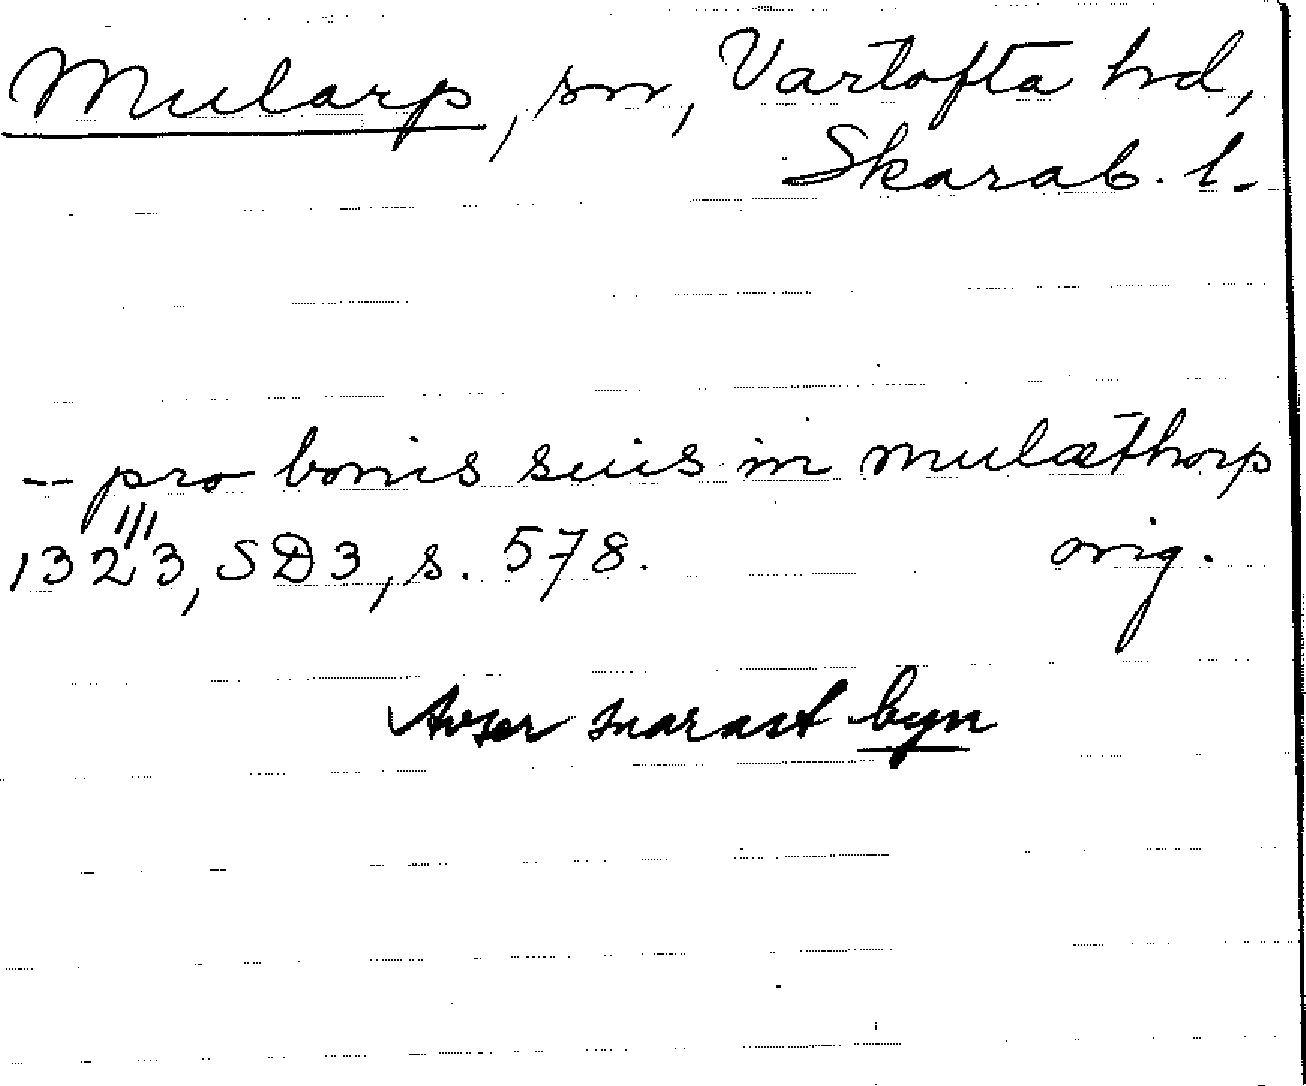 Mularp, sn, Vartofta hd,
Skarab. l.
-- pro bonis suis in mulæthorp
1323, SD3, s. 578. orig.
Avser snarast byn